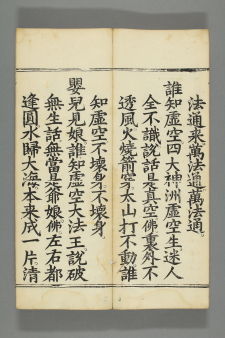 法通来萬法通萬法通。
誰知虚空四大神洲虚空生迷人
全不識説話是真空佛裏外不
透風火燒箭穿太山打不動誰
知虚空不壞身不壞身。
嬰兒見娘誰知虚空大法王説破
無生話無當是爺娘佛左右都
逢圓水歸大海本来成一片清